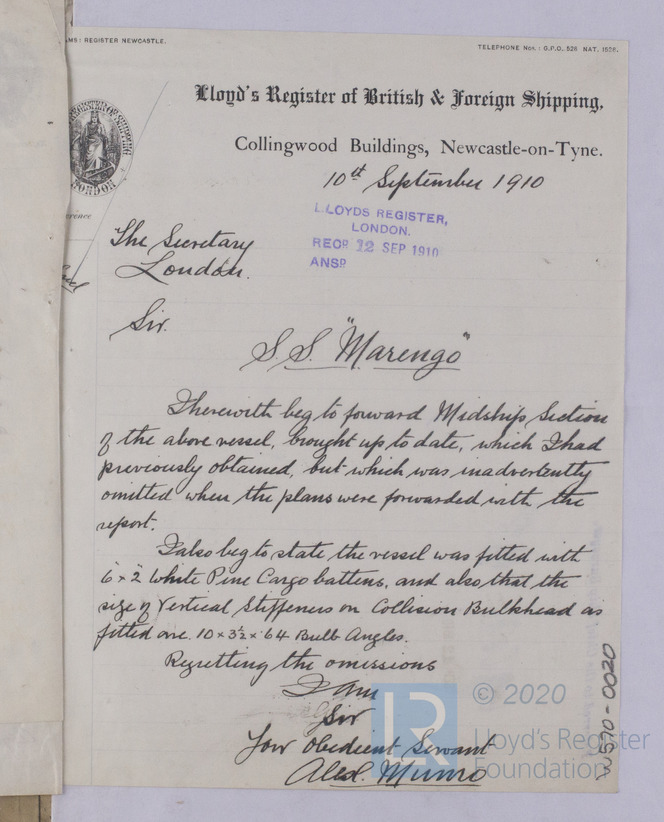 AMS: REGISTER NEWCASTLE.
TELEPHONE Nos.: G.P.O. 528 NAT. 1506.
Lloyd's Register of British & Foreign Shipping,
Collingwood Buildings, Newcastle-on-Tyne.
10th September 1910
LLOYDS REGISTER,
LONDON.
RECD 12 SEP 1910
ANSD
The Secretary
London.
Sir.
S.S. "Marengo"
I herewith beg to forward Midship Section
of the above vessel, brought up to date, which I had
previously obtained, but which was inadvertently
omitted when the plans were forwarded with the
report.
I also beg to state the vessel was fitted with
6" x 2" White Pine Cargo battens, and also that the
size of Vertical Stiffeners on Collision Bulkhead as
fitted are. 10 x 3½ x 64 Bulb Angles.
Regretting the omissions
I am
Sir
Your Obedient Servant
Alexr. Munro
LR
© 2020
Lloyd's Register
Foundation
W570-0020